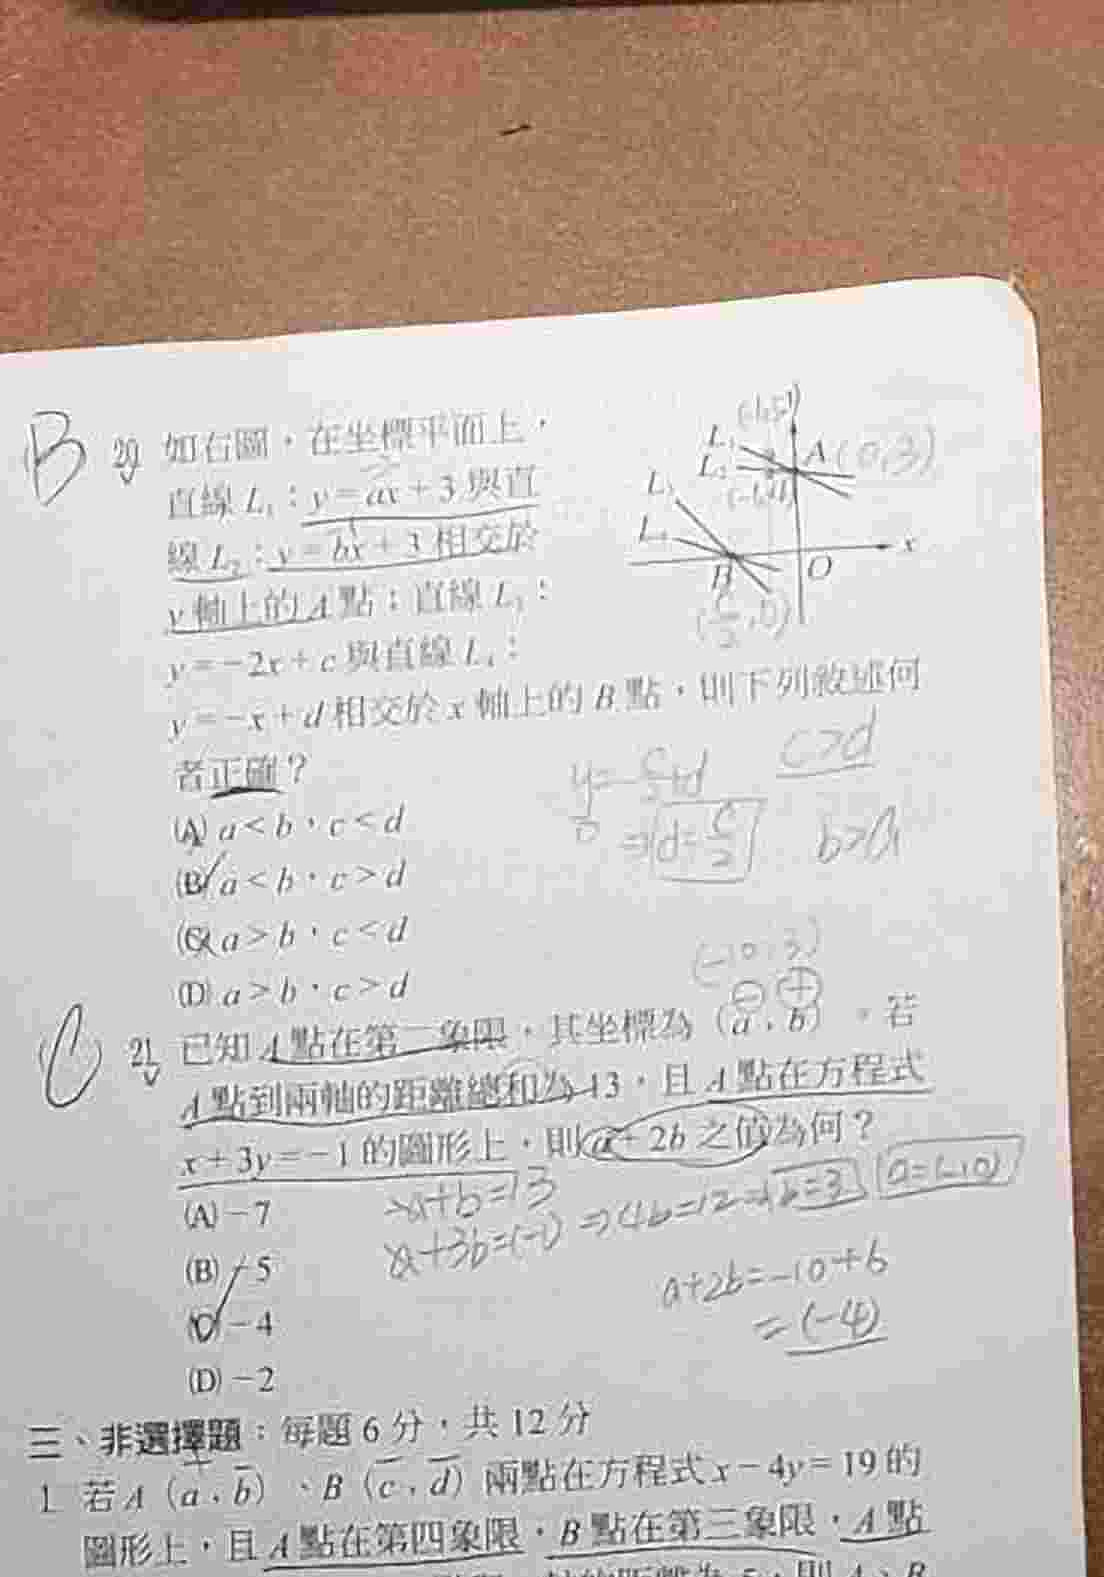 B 20 如右圖，在坐標平面上，
直線 L₁：y=ax+3 與直
線 L₂：y=bx+3 相交於
y 軸上的 A 點；直線 L₃：
y=-2x+c 與直線 L₄：
y=-x+d 相交於 x 軸上的 B 點，則下列敘述何
者正確？
(A) a<b，c<d
(B) a<b，c>d
(C) a>b，c<d
(D) a>b，c>d
L₁
L₂
A (0,3)
L₃
L₄
B
O
x
(c/2,0)
y=-c/2+d
0
⇒ d=c/2
c>d
b>a
(-10,3)
- +
C 21 已知 A 點在第二象限，其坐標為 (a，b)。若
A 點到兩軸的距離總和為 13，且 A 點在方程式
x+3y=-1 的圖形上，則 a+2b 之值為何？
(A) -7
(B) -5
(C) -4
(D) -2
-a+b=13
a+3b=(-1)
⇒ 4b=12 ⇒ b=3 a=(-10)
a+2b=-10+6
=(-4)
三、非選擇題：每題 6 分，共 12 分
1. 若 A (a，b)、B (c，d) 兩點在方程式 x-4y=19 的
圖形上，且 A 點在第四象限，B 點在第三象限，A 點